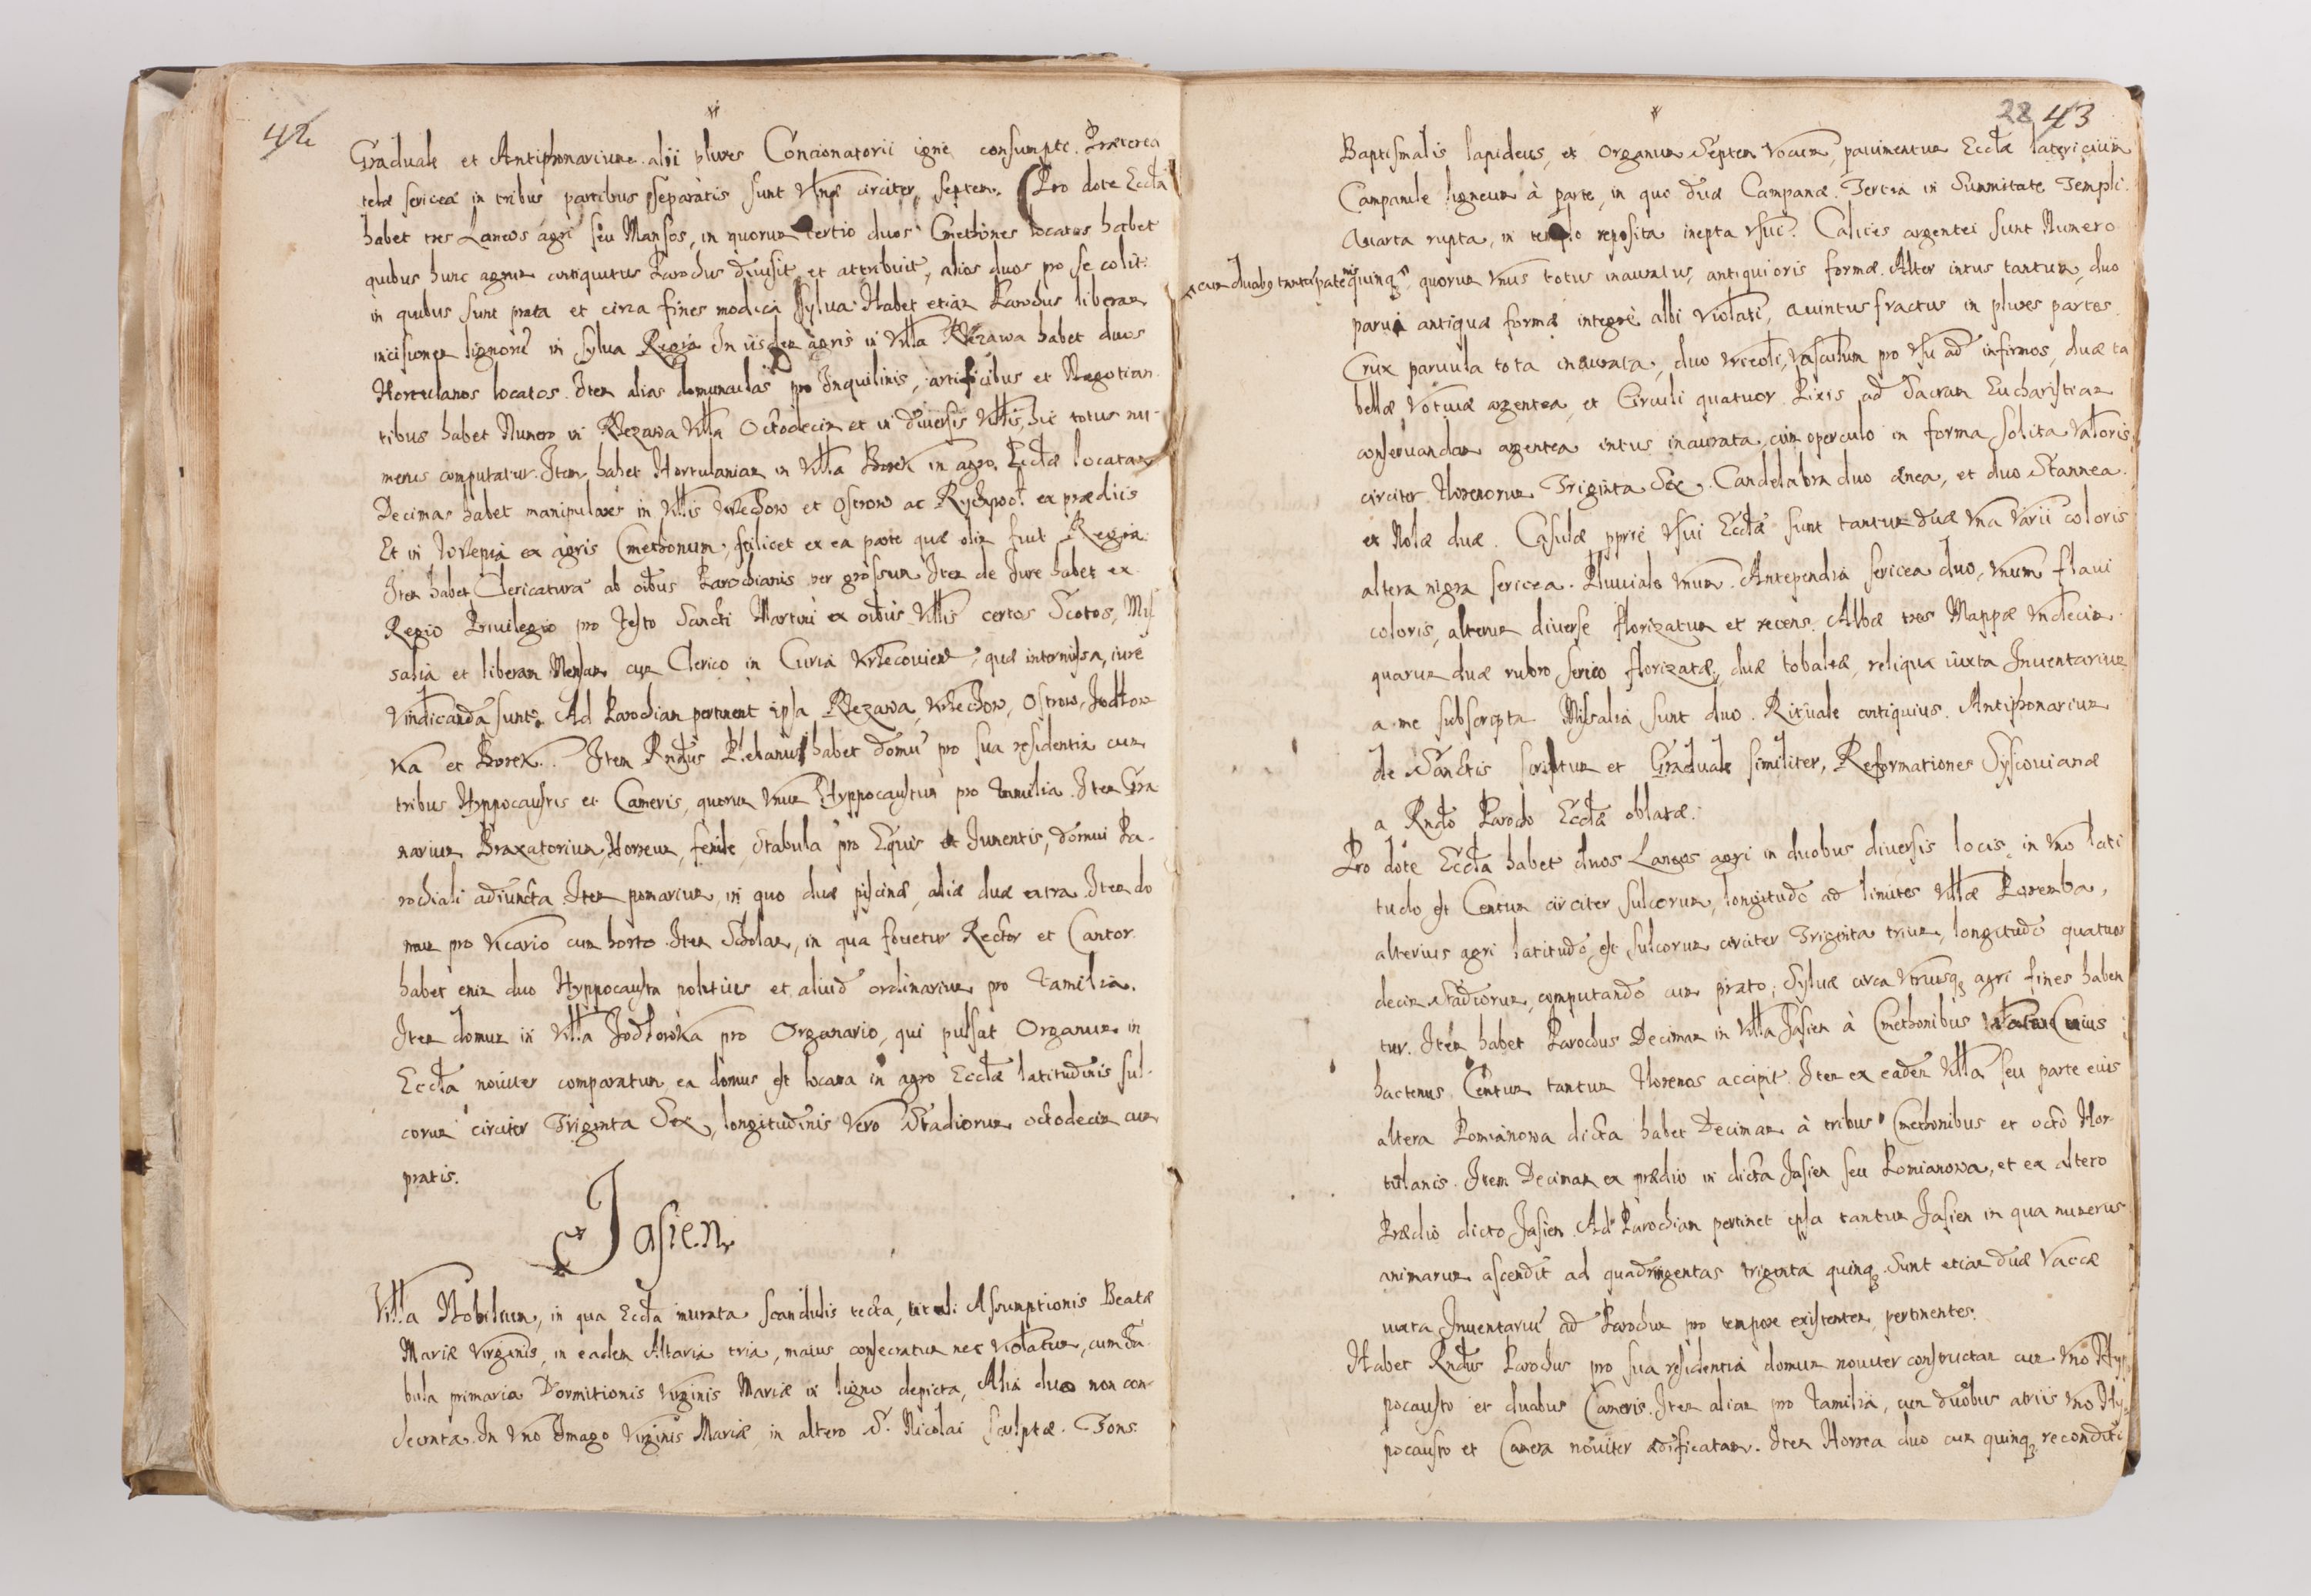 42
Graduale et Antiphonarium. alii plures Concionatorii igne consumpti. Præterea
telæ sericeæ in tribus partibus separatis sunt Vlnæ circiter septem. Pro dote Eccl̃a
habet tres Laneos agri seu Mansos, in quorum tertio duos Cmethones locatos habet
quibus hunc agrum antiquitus Parochus diuisit et attribuit, alios duos pro se colit:
in quibus sunt prata et circa fines modica sylua. Habet etiam Parochus liberam
incisionem lignorũ in sylua Regia. In iisdem agris in Villa Rzezawa habet duos
Hortulanos locatos. Item alias domunculas pro Inquilinis, artificibus et Negotian
tibus habet Numero in Rzezawa Villa Octodecim et in diuersis Villis, hic totus nu-
merus computatur. Item habet Hortulaniam in Villa Borek in agro Eccl̃æ locatam
Decimas habet manipulares in Villis Krzeczow et Ostrow ac Rychwoł. ex prædiis
Et in ex agris Cmethonum, scilicet ex ea parte quæ olim fuit Regia.
Item habet Clericaturã ab oĩbus Parochianis per grossum. Item de Jure habet ex
Regio Priuilegio pro Festo Sancti Martini ex oĩbus Villis certos Scotos, Mis
salia et liberam Mensam cum Clerico in Curia quæ intermissa, iure
vindicanda sunt. Ad Parochiam pertinent ipsa Rzezawa, Krzeczow, Ostrow, Jodłow
ka et Borek. Item Rnd̃us Plebanus habet domũ pro sua residentia cum
tribus Hyppocaustis et Cameris, quorum vnum Hyppocaustum pro Familia. Item Gra
narium Braxatorium, Horreum, fenile, stabula pro Equis et Jumentis, domui Pa-
rochiali adiuncta. Item pomarium, in quo duæ piscinæ, aliæ duæ extra. Item do
mum pro Vicario cum horto. Item Scholam, in qua fouetur Rector et Cantor.
habet enim duo Hyppocausta politius et aliud ordinarium pro Familia.
Item domum in Villa Jodłowka pro Organario, qui pulsat Organum in
Eccl̃a nouiter comparatum, ea domus est locata in agro Eccl̃æ latitudinis sul-
corum circiter Triginta Sex, longitudinis vero Stadiorum octodecim cum
pratis.
Jasien.
Villa Nobilium, in qua Eccl̃a murata scandulis tecta, tituli Assumptionis Beatæ
Mariæ Virginis, in eadem Altaria tria, maius consecratum nec violatum, cum ta
bula primaria Dormitionis Virginis Mariæ in ligno depicta, Alia duo non con-
secrata. In Vno Imago Virginis Mariæ, in altero S. Nicolai sculptæ. Fons
28 43
Baptismalis lapideus, et Organum Septem vocum, pauimentum Eccl̃æ latericium
Campanile ligneum à parte, in quo duæ Campanæ. Tertia in Summitate Templi.
Quarta rupta, in templo reposita inepta vsui. Calices argentei sunt Numero
cum duabus tantum patenis
quinq, quorum vnus totus inauratus, antiquioris formæ. Alter intus tantum, duo
parui antiquæ formæ integrè albi violati, Quintus fractus in plures partes.
Crux paruula tota inaurata, duo vrceoli, vasculum pro vsu ad infirmos, duæ ta
bellæ Votiuæ argenteæ, et Circuli quatuor. Pixis ad Sacram Eucharistiam
conseruandam argentea intus inaurata, cum operculo in forma solita valoris
circiter florenorum Triginta Sex. Candelabra duo ænea, et duo Stannea.
et Nolæ duæ. Casulæ pprié vsui Eccl̃æ sunt tantum duæ vna varii coloris
altera nigra sericea. Pluuiale vnum. Antependia sericea duo, vnum flaui
coloris, alterum diuerse florizatum et recens. Albæ tres Mappæ vndecim.
quarum duæ rubro serico florizatæ, duæ tobaleæ, reliqua iuxta Inuentarium
a me subscripta. Missalia sunt duo. Rituale antiquius. Antiphonarium
de Sanctis scriptum et Graduale similiter, Reformationes Syscouianæ
a Rndo Parocho Eccl̃æ oblatæ.
Pro dote Eccl̃a habet duos Laneos agri in duobus diuersis locis, in vno lati
tudo est Centum circiter sulcorum, longitudo ad limites Villæ Poremba,
alterius agri latitudo est sulcorum circiter Triginta trium, longitudo quatuor
decim Stadiorum, computando cum prato, Syluæ circa vtriusq agri fines haben
tur. Item habet Parochus Decimam in Villa Jasien à Cmethonibus Cuius
hactenus Centum tantum florenos accipit. Item ex eadem Villa seu parte eius
altera Pomianowa dicta habet Decimam à tribus Cmethonibus et octo Hor-
tulanis. Item Decimam ex prædio in dicta Jasien seu Pomianowa, et ex altero
Prædio dicto Jasien. Ad Parochiam pertinet ipsa tantum Jasien in qua numerus
animarum ascendit ad quadringentas triginta quinq. Sunt etiam duæ vaccæ
iuxta Inuentariũ ad Parochum pro tempore existentem pertinentes.
Habet Rnd̃us Parochus pro sua residentia domum nouiter constructam cum vno Hyp
pocausto et duabus Cameris. Item aliam pro Familia, cum duobus atriis vno Hyp
pocausto et Camera nouiter ædificatam. Item Horrea duo cum quinq recondito